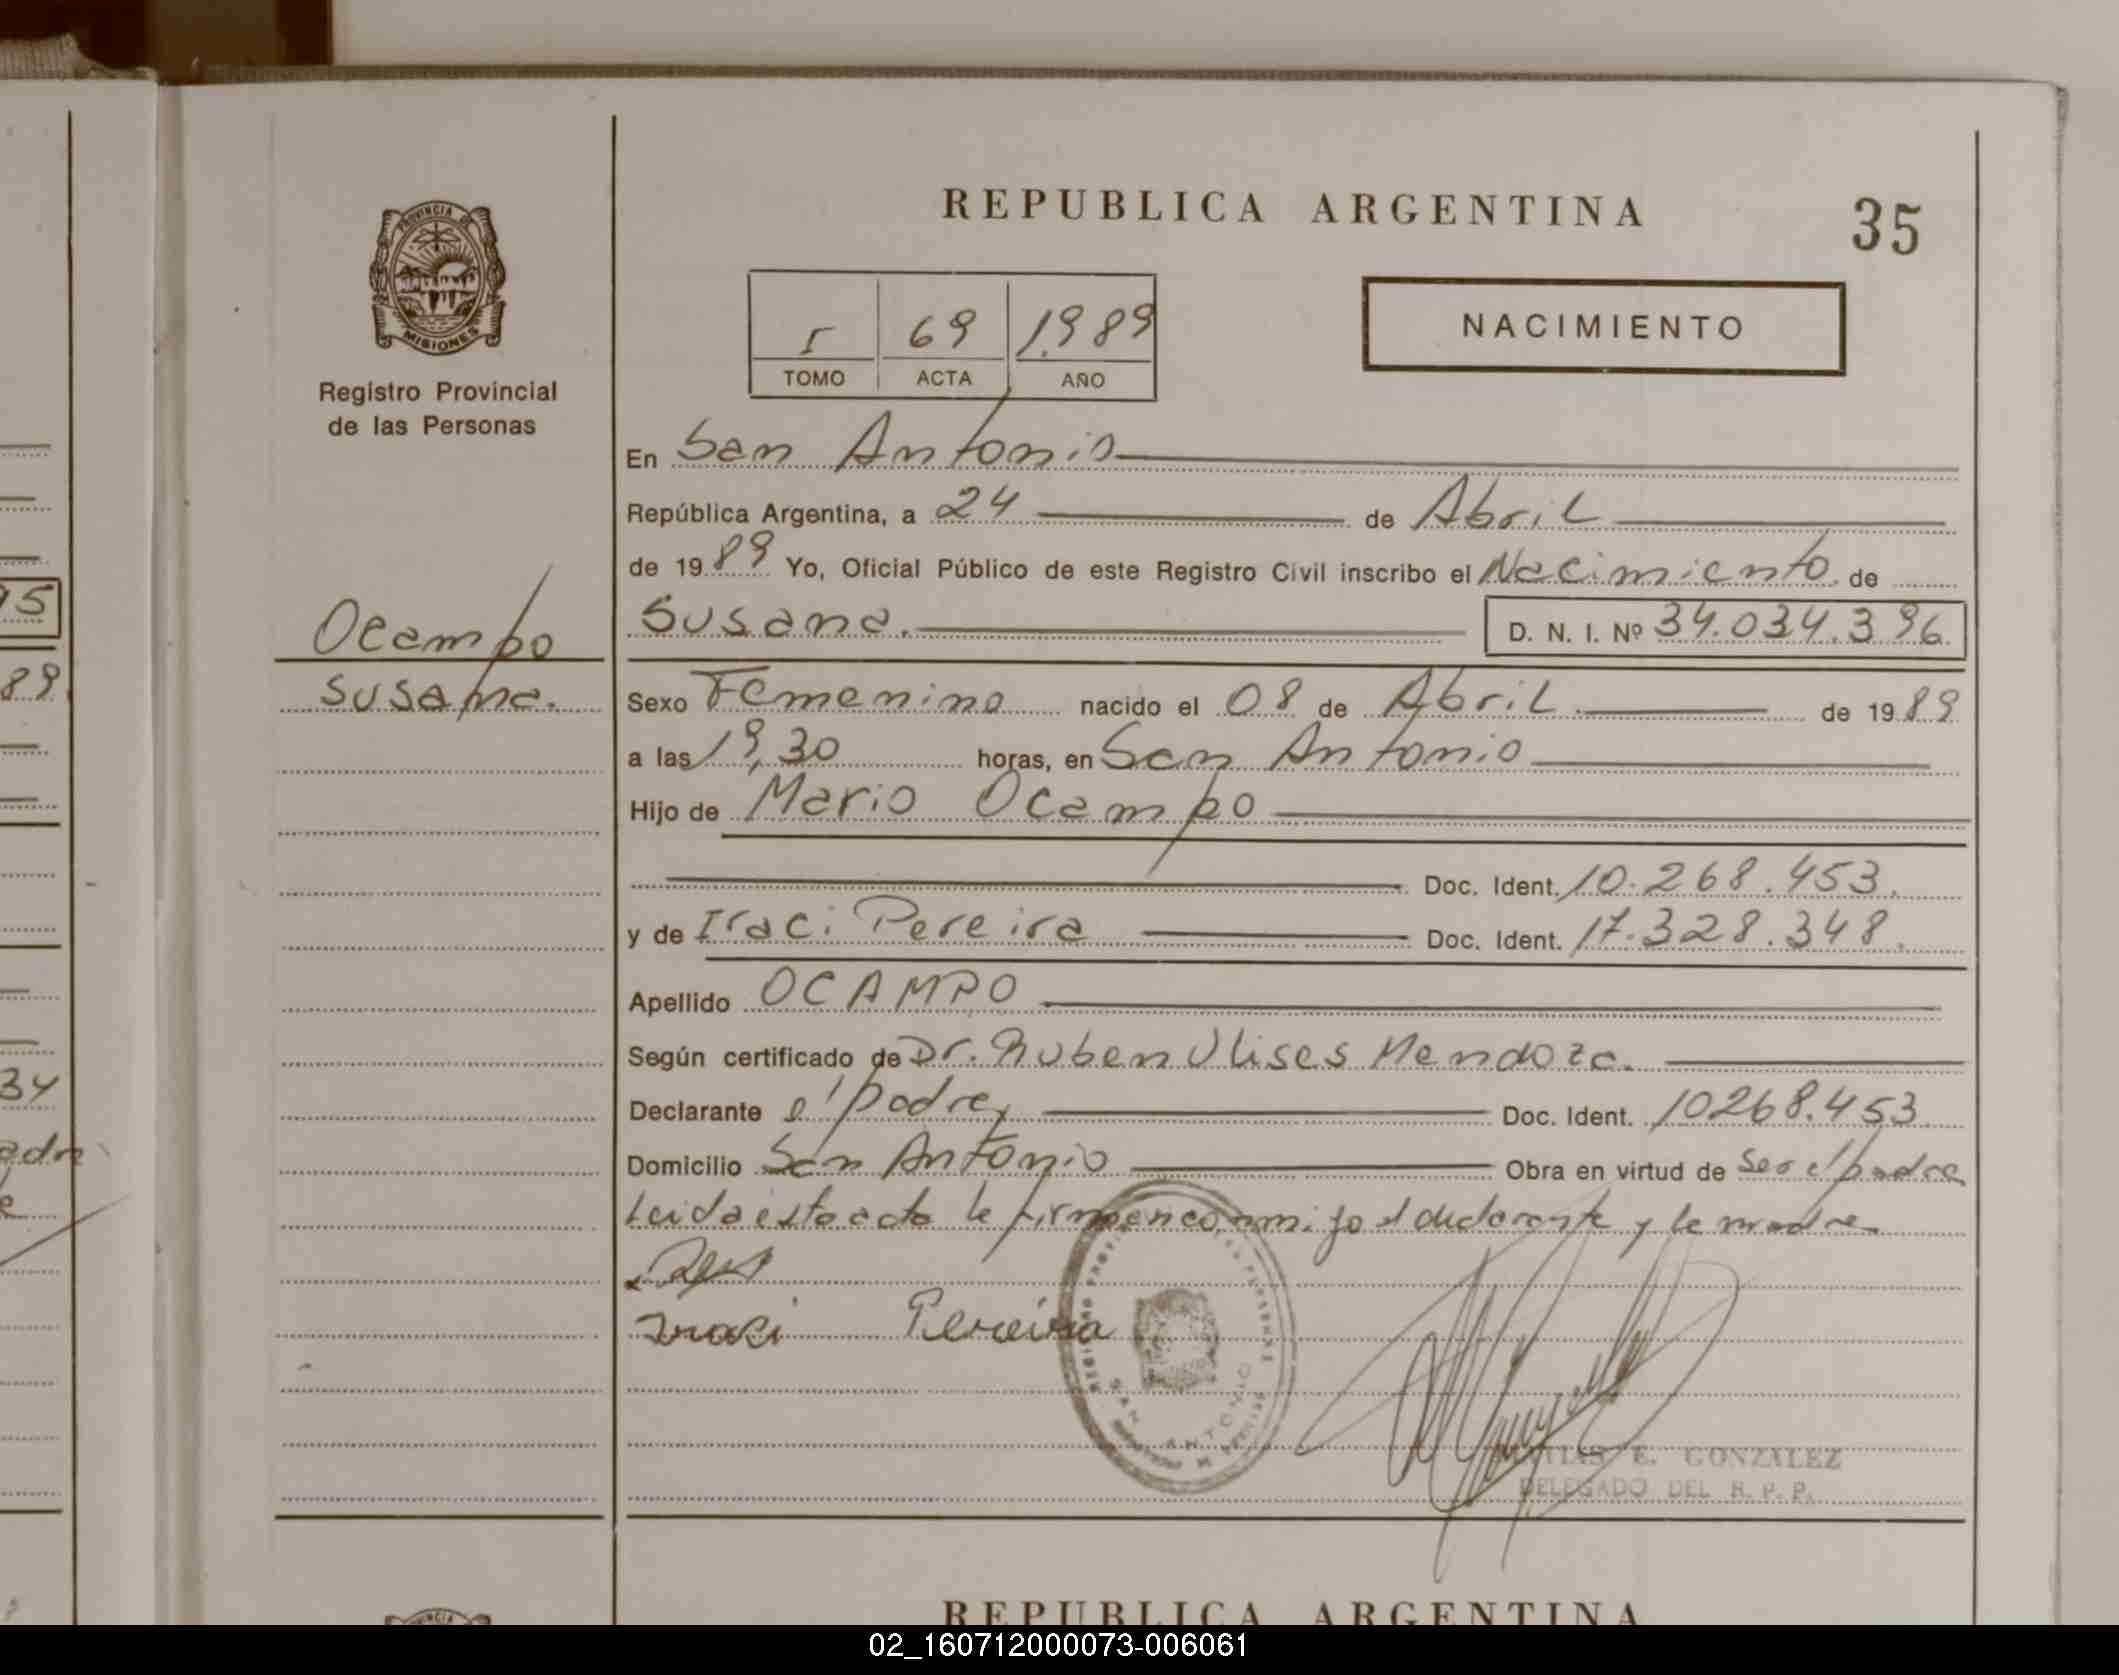 REPUBLICA ARGENTINA
35
PROVINCIA DE
MISIONES
Registro Provincial
de las Personas
I 69 1989
TOMO ACTA AÑO
NACIMIENTO
En San Antonio
República Argentina, a 24 de Abril
de 1989 Yo, Oficial Público de este Registro Civil inscribo el Nacimiento de
Susana. D. N. I. Nº 34.034.396
Ocampo
Susana.
Sexo Femenino nacido el 08 de Abril de 1989
a las 19,30 horas, en San Antonio
Hijo de Mario Ocampo
Doc. Ident. 10.268.453.
y de Iraci Pereira Doc. Ident. 17.328.348.
Apellido OCAMPO
Según certificado de Dr. Ruben Ulises Mendoza.
Declarante el padre, Doc. Ident. 10268.453
Domicilio San Antonio Obra en virtud de ser el padre
Leida esta acta la firman conmigo el declarante y la madre
Iraci Pereira
SAN ANTONIO
MATIAS E. GONZALEZ
DELEGADO DEL R. P. P.
REPUBLICA ARGENTINA
95
89
34
02_160712000073-006061